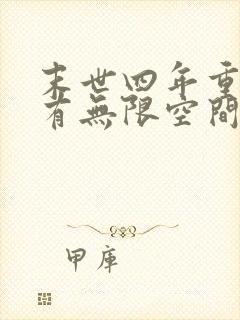 末世四年重
有無限空間
甲庫